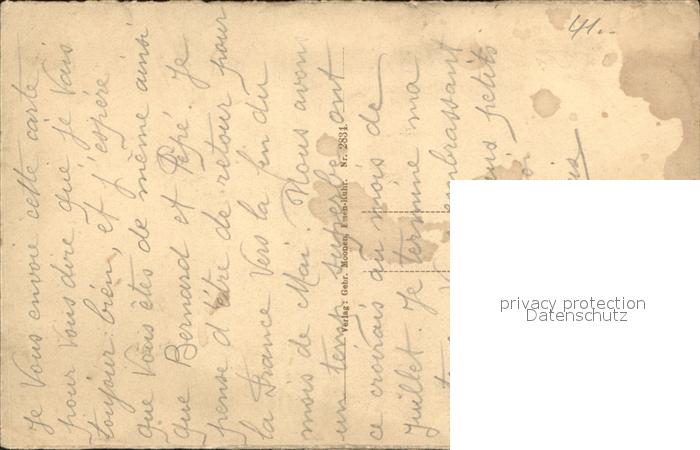 Je Vous envoie cette carte
pour vous dire que je Vais
toujour bien, et j'espére
que Vous êtes de même ainsi
que Bernard et Pépé. Je
pense d'être de retour pour
la France Vers la fin du
mois de Mai. Nous avons
un temp superbe ont
ce croirais au mois de
juillet. Je termine ma
embrassant
petits
41.-
Verlag: Gebr. Moonen, Essen-Ruhr. Nr. 2831.
privacy protection
Datenschutz